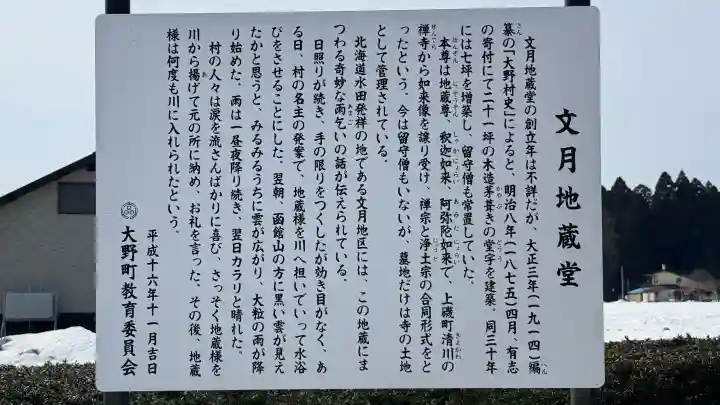 文月地蔵堂
文月地蔵堂の創立年は不詳だが、大正三年(一九一四)編
纂の「大野村史」によると、明治八年(一八七五)四月、有志
の寄付にて二十一坪の木造茅葺きの堂宇を建築。同三十年
には七坪を増築し、留守僧も常置していた。
本尊は地蔵尊、釈迦如来、阿弥陀如来で、上磯町清川の
禅寺から如来像を譲り受け、禅宗と浄土宗の合同形式をと
ったという。今は留守僧もいないが、墓地だけは寺の土地
として管理されている。
北海道水田発祥の地である文月地区には、この地蔵にま
つわる奇妙な雨乞いの話が伝えられている。
日照りが続き、手の限りをつくしたが効き目がなく、あ
る日、村の名主の発案で、地蔵様を川へ担いでいって水浴
びをさせることにした。翌朝、函館山の方に黒い雲が見え
たかと思うと、みるみるうちに雲が広がり、大粒の雨が降
り始めた。雨は一昼夜降り続き、翌日カラリと晴れた。
村の人々は涙を流さんばかりに喜び、さっそく地蔵様を
川から揚げて元の所に納め、お礼を言った。その後、地蔵
様は何度も川に入れられたという。
平成十六年十一月吉日
大野町教育委員会